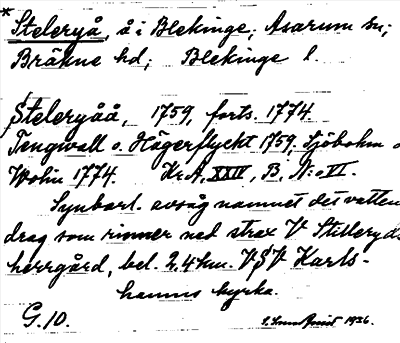 * Steleryå, å i Blekinge, Asarum sn;
Bräkne hd; Blekinge l.
Steleryåå, 1759, forts. 1774.
Tengwall o. Hägerflyckt 1759, Sjöbohm o
Wolin 1774. Kr.A. XXIV, B, N:o VI.
Synbarl. avsåg namnet det vatten
drag som rinner ned strax V Stilleryds
herrgård, bel. 2,4 km. VSV Karls-
hamns kyrka.
G. 10. 1936.